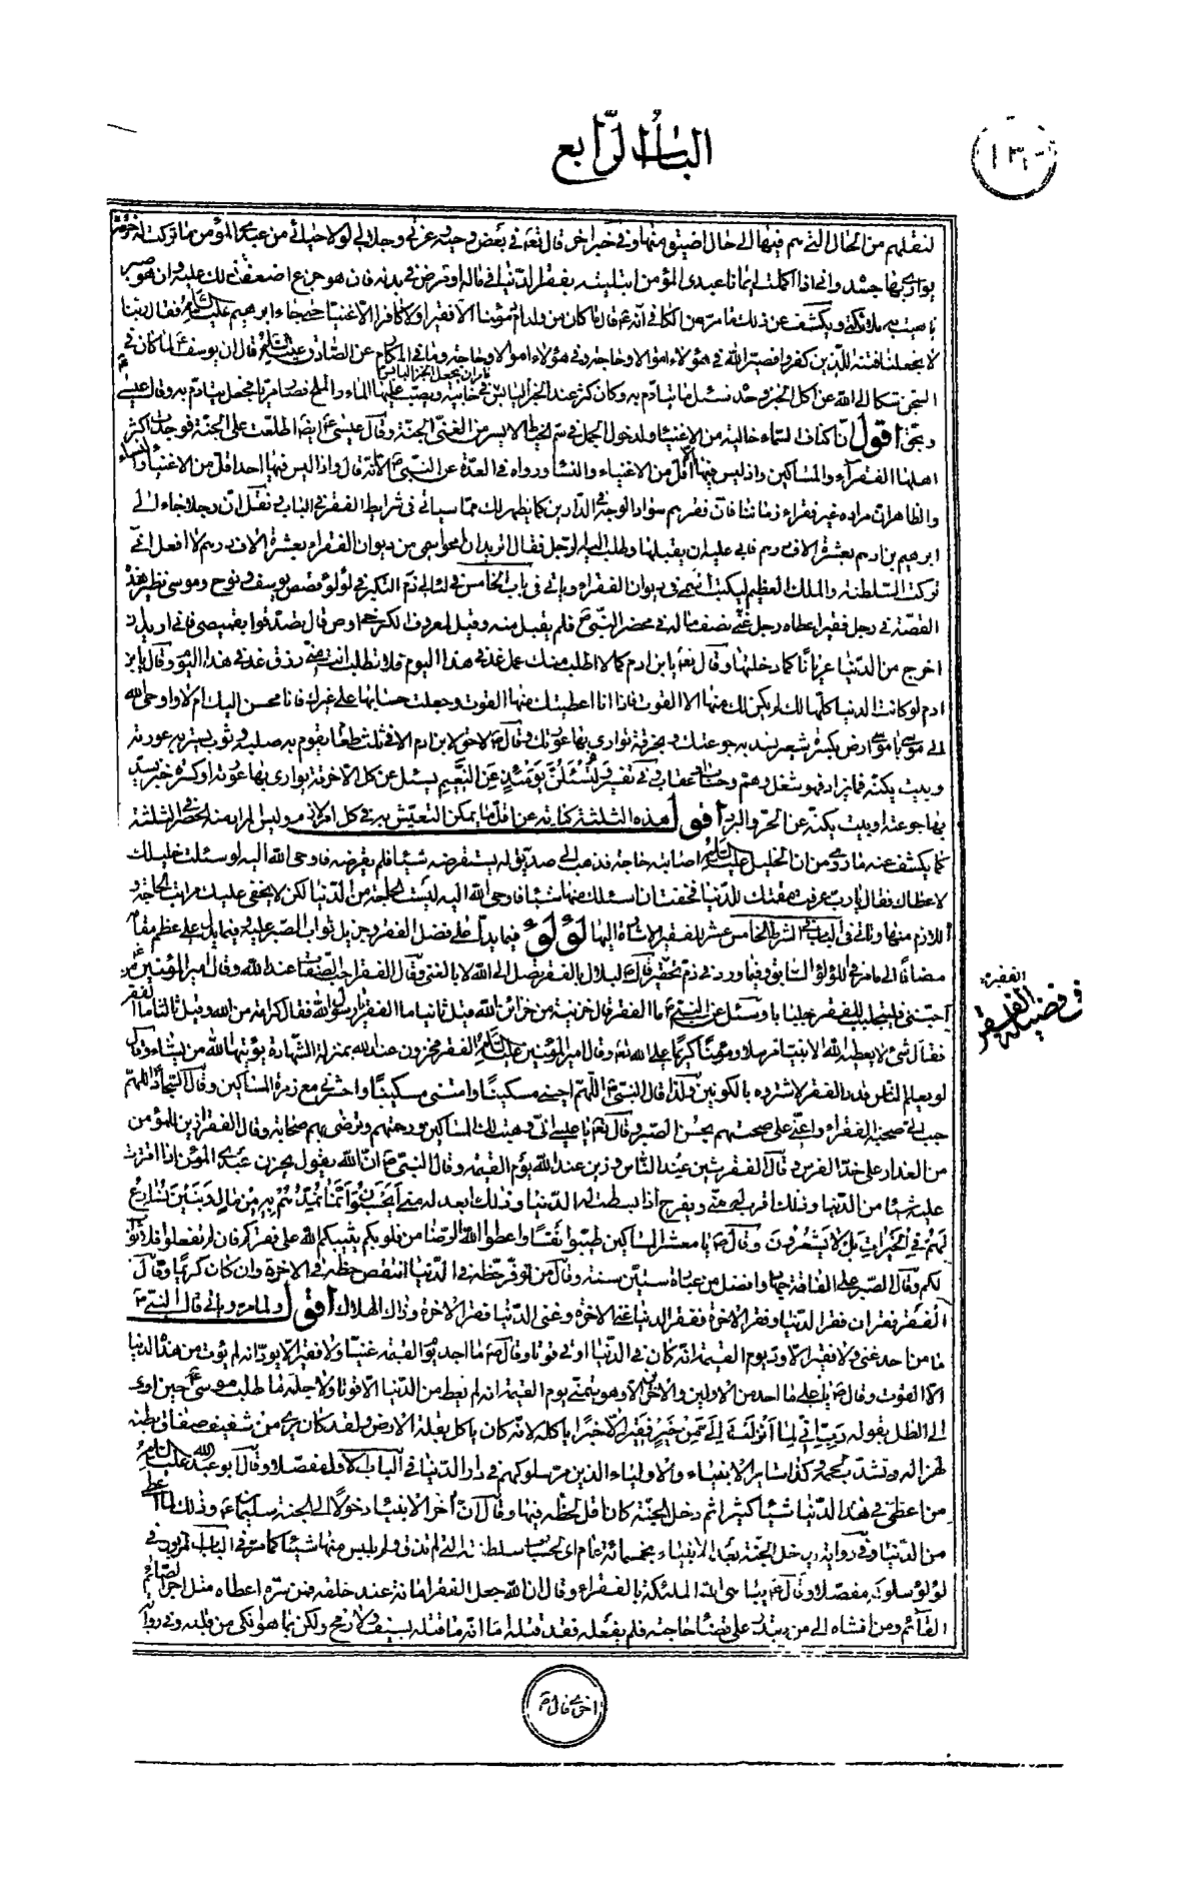 الباب الرابع
لنقلهم من الحال التي هم فيها الى حال اضيق منها وفى خبر اخر قال تعالى فى بعض وحيه وعزتى وجلالى لولا حيائى من عبدى المؤمن ما تركت له خرقة
يوارى بها جسده وانى اذا اكملت ايمان عبدى المؤمن ابتليته بفقر الدنيا فى ماله او مرض فى بدنه فان هو جزع اضعفت ذلك عليه وان هو صبر
باهيت به ملائكتى ويكشف عن ذلك ما مر من الكافى انه قال ما كان من ولد ادم مؤمنا الا فقيرا ولا كافرا الا غنيا حتى جاء ابرهيم عليه السلام فقال ربنا
لا تجعلنا فتنة للذين كفروا فصير الله فى هؤلاء اموالا وحاجة وفى هؤلاء اموالا وحاجة وما فى المكارم عن الصادق عليه السلام قال ان يوسف لما كان فى
السجن شكا الى الله عن اكل الخبز وحده وسئل ما يتادم به وكان كثر عنده الخبز اليابس فى خابية ويصب عليها الماء والملح فصار مريا فجعل يتادم به وقال عيسى
اقول
اهلها الفقراء والمساكين واذ ليس فيها اقل من الاغنياء والنساء ورواه فى العدة عن النبى انه قال واذا ليس فيها احد اقل من الاغنياء والنساء
والظاهر ان مراده غير فقراء زماننا فان فقرهم سواد الوجه فى الدارين كما يظهر لك مما سياتى فى شرايط الفقر فى الباب ونقل ان رجلا جاء الى
ابرهيم بن ادهم بعشرة الاف درهم فابى عليه ان يقبلها وطلب اليه الرجل فقال اتريد ان تمحو اسمى من ديوان الفقراء بعشرة الاف درهم لا افعل انى
تركت السلطنة والملك العظيم ليكتب اسمى فى ديوان الفقراء وياتى فى الباب الخامس فى لئالى ذم التكبر فى لؤلؤ قصص يوسف ونوح وموسى نظير هذه
القصة فى رجل فقير اعطاه رجل غنى نصف ماله فى محضر النبى فلم يقبل منه وقيل لمعروف الكرخى اوص قال تصدقوا بقميصى فانى اريد ان
اخرج من الدنيا عريانا كما دخلتها وقال تعالى يا بن ادم كما لا اطلب منك عمل غد فى هذا اليوم فلا تطلب انت منى رزق غد فى هذا اليوم وقال يا بن
ادم لو كانت الدنيا كلها لك لم يكن لك منها الا القوت فاذا انا اعطيتك منها القوت وجعلت حسابها على غيرك فانا محسن اليك ام لا واوحى الله
الى موسى يا موسى ارض بكسرة شعير تسد به جوعتك وبخرقة توارى بها عورتك وقال لا حق لابن ادم الا فى ثلث طعام يقوم به صلبه وثوب يستر به عورته
وبيت يكنه فما زاد فهو شغل وهم وحساب وعقاب وفى تفسير ولتسئلن يومئذ عن النعيم يسئل عن كل الا خرقة يوارى بها عورته او كسرة خبز يسد
بها جوعته او بيت يكنه عن الحر والبرد اقول هذه الثلثة كناية عن اقل ما يمكن التعيش به فى كل امر لا وليس المراد منه الحصر فى الثلثة
كما يكشف عنه ما روى من ان الخليل عليه السلام اصابته حاجة فذهب الى صديق له يستقرضه شيئا فلم يقرضه فاوحى الله اليه لو سئلت خليلك
لاعطاك فقال يا رب عرفت مقتك للدنيا فخفت ان اسئلك منها شيئا فاوحى الله اليه ليست الحاجة من الدنيا لكن لا يخفى عليك مراتب الحاجة
اللازم منها وياتى فى الباب فى الشرط الخامس عشر للفقير الاشارة اليها لؤلؤ فيما يدل على فضل الفقر وجزيل ثواب الصبر عليه وفيما يدل على عظم مقام
مضافا الى ما مر فى اللؤلؤ السابق وفيما ورد فى ذم تحقير قال لبلال بالفقر تصل الى الله لا بالغنى وقال الفقر احب الصفات عند الله وقال امير المؤمنين من
احبنى فليتخذ للفقر جلبابا وسئل عن النبى ما الفقر قال خزينة من خزائن الله قيل ثانيا ما الفقر يا رسول الله فقال كرامة من الله وقيل ثالثا ما الفقر
فقال شئ لا يعطيه الله الا نبيا مرسلا ومؤمنا كريما على الله تعالى وقال امير المؤمنين عليه السلام الفقر مخزون عند الله بمنزلة الشهادة يؤتيها الله من يشاء وقال
لو يعلم الناس قدر الفقر لاشتروه بالكونين ولذا قال النبى اللهم احينى مسكينا وامتنى مسكينا واحشرنى مع زمرة المساكين وقال السجاد اللهم
حبب الى صحبة الفقراء واعنى على صحبتهم بحسن الصبر وقال تعالى يا عيسى انى وهبت لك المساكين ورحمتهم وترضى بهم صحابة وقال الفقر ازين للمؤمن
من العذار على خد الفرس وقال الفقر شين عند الناس وزين عند الله يوم القيمة وقال النبى ان الله يقول يحزن عبدى المؤمن اذا اقترت
عليه شيئا من الدنيا وذلك اقرب له منى ويفرح اذا بسطت له الدنيا وذلك ابعد له منى ايحسبون انما نمدهم به من مال وبنين نسارع
لهم فى الخيرات بل لا يشعرون وقال يا معشر المساكين طيبوا نفسا واعطوا الله الرضا من قلوبكم يثيبكم الله على فقركم فان لم تفعلوا فلا ثواب
لكم وقال الصبر على الفاقة جهاد وافضل من عبادة ستين سنة وقال من توفر حظه فى الدنيا انتقص حظه فى الاخرة وان كان كريما وقال
الفقر فقران فقر الدنيا وفقر الاخرة ففقر الدنيا غنى الاخرة وغنى الدنيا فقر الاخرة وذلك الهلاك اقول ولما مر وياتى قال النبى
ما من احد غنى ولا فقير الا ود يوم القيمة انه كان فى الدنيا اوتى قوتا وقال ما احد يوم القيمة غنيا ولا فقيرا الا يود انه لم يؤت من هذه الدنيا
الا القوت وقال بل على ما احد من الاولين والاخرين الا وهو يتمنى يوم القيمة انه لم يعط من الدنيا الا قوتا ولاجله ما طلب موسى حين اوى
الى الظل بقوله رب انى لما انزلت الى من خير فقير الا خبزا ياكله لانه كان ياكل بقلة الارض ولقد كان يرى من شفيف صفاق بطنه
لهزاله وتشذب لحمه وكذا ساير الانبياء والاولياء الذين مر سلوكهم فى دار الدنيا فى الباب الاول مفصلا وقال ابو عبد الله عليه السلام
من اعطى فى هذه الدنيا شيئا كثيرا ثم دخل الجنة كان اقل لحظه فيها وقال ان اخر الانبياء دخولا الى الجنة سليمان وذلك لما اعطى
من الدنيا وفى رواية يدخل الجنة بعد الانبياء بخمسمائة عام اى لحساب سلطنته التى لم تذق ولم يلبس منها شيئا كما مر فى الباب الاول فى
لؤلؤ سلوكه مفصلا وقال يباهى الله الملئكة بالفقراء وقال ان الله جعل الفقر امانة عند خلقه فمن ستره اعطاه مثل اجر الصائم
القائم ومن افشاه الى من يقدر على قضاء حاجته فلم يفعله فقد قتله اما انه ما قتله بسيف ولا رمح ولكن بما هو انكى من قلبه وفى رواية
فى فضيلة الفقر
الفقير
اخرى قال